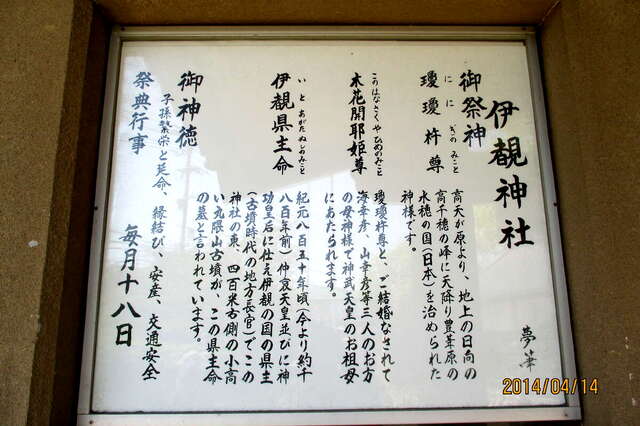 伊覩神社
御祭神
瓊瓊杵尊
ににぎのみこと
高天が原より、地上の日向の
高千穂の峰に天降り豊葦原の
水穂の国(日本)を治められた
神様です。
木花開耶姫尊
このはなさくやひめのみこと
瓊瓊杵尊と、ご結婚なされて
海幸彦、山幸彦等三人のお方
の母神様で神武天皇のお祖母
にあたられます。
伊覩県主命
いとあがたぬしのみこと
紀元八百五十年頃(今より約千
八百年前)仲哀天皇並びに神
功皇后に仕え伊覩の国の県主
(古墳時代の地方長官)でこの
神社の東、四百米右側の小高
い丸隈山古墳が、この県主命
の墓と言われています。
御神徳
子孫繁栄と延命、縁結び、安産、交通安全
祭典行事
毎月十八日
夢筆
2014/04/14